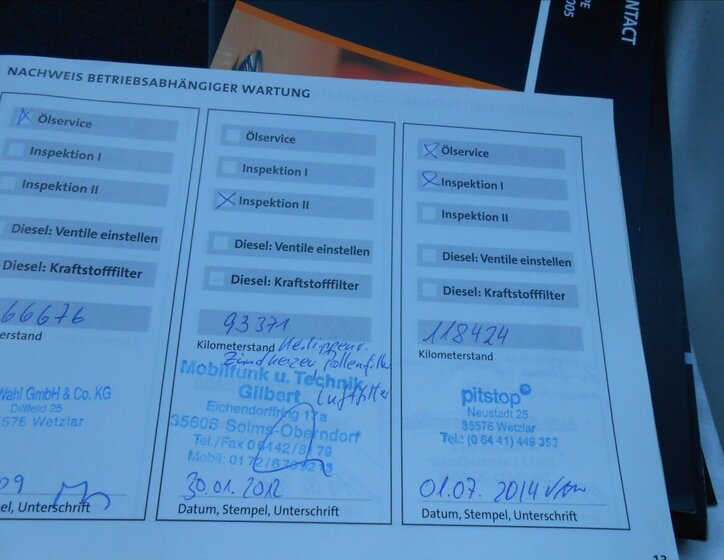 ONTACT
005
NACHWEIS BETRIEBSABHÄNGIGER WARTUNG
Ölservice
Inspektion I
Inspektion II
Diesel: Ventile einstellen
Diesel: Kraftstofffilter
66676
erstand
Wahl GmbH & Co. KG
Dillfeld 25
35576 Wetzlar
09
el, Unterschrift
Ölservice
Inspektion I
Inspektion II
Diesel: Ventile einstellen
Diesel: Kraftstofffilter
93371
Kilometerstand
Zündkerzen Pollenfilter
Luftfilter
Mobilfunk u. Technik
Gilbert
Eichendorffring 17a
35606 Solms-Oberndorf
Tel./Fax 0 64 42/
Mobil: 01 72/
30.01.2012
Datum, Stempel, Unterschrift
Ölservice
Inspektion I
Inspektion II
Diesel: Ventile einstellen
Diesel: Kraftstofffilter
118424
Kilometerstand
pitstop
Neustadt 25
35576 Wetzlar
Tel.: (0 64 41) 449 352
01.07.2014
Datum, Stempel, Unterschrift
13